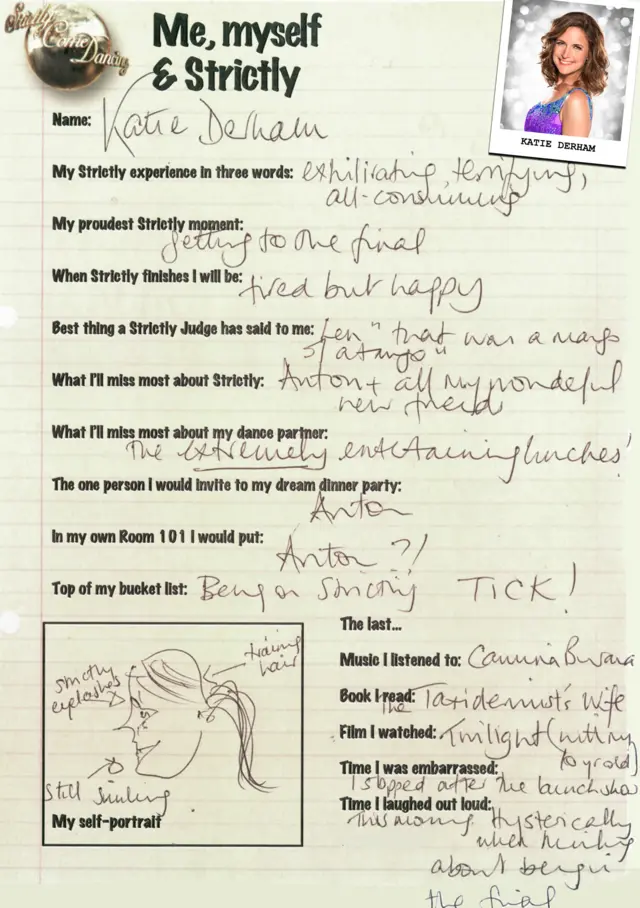 Strictly Come Dancing
Me, myself
& Strictly
KATIE DERHAM
Name: Katie Derham
My Strictly experience in three words: exhilirating, terrifying,
all-consuming
My proudest Strictly moment:
getting to the final
When Strictly finishes I will be: tired but happy
Best thing a Strictly Judge has said to me: Len "that was a mango
of a tango"
What I'll miss most about Strictly: Anton + all my wonderful
new friends
What I'll miss most about my dance partner:
The extremely entertaining lunches!
The one person I would invite to my dream dinner party:
Anton
In my own Room 101 I would put:
Anton ?!
Top of my bucket list: Being on Strictly TICK!
The last...
Music I listened to: Carmina Burana
Book I read: The Taxidermist's Wife
Film I watched: Twilight (with my
10 yr old)
Time I was embarrassed:
I slipped after the launch show
Time I laughed out loud:
This morning. Hysterically
when thinking
about being in
the final
training
hair
strictly
eyelashes
still smiling
My self-portrait